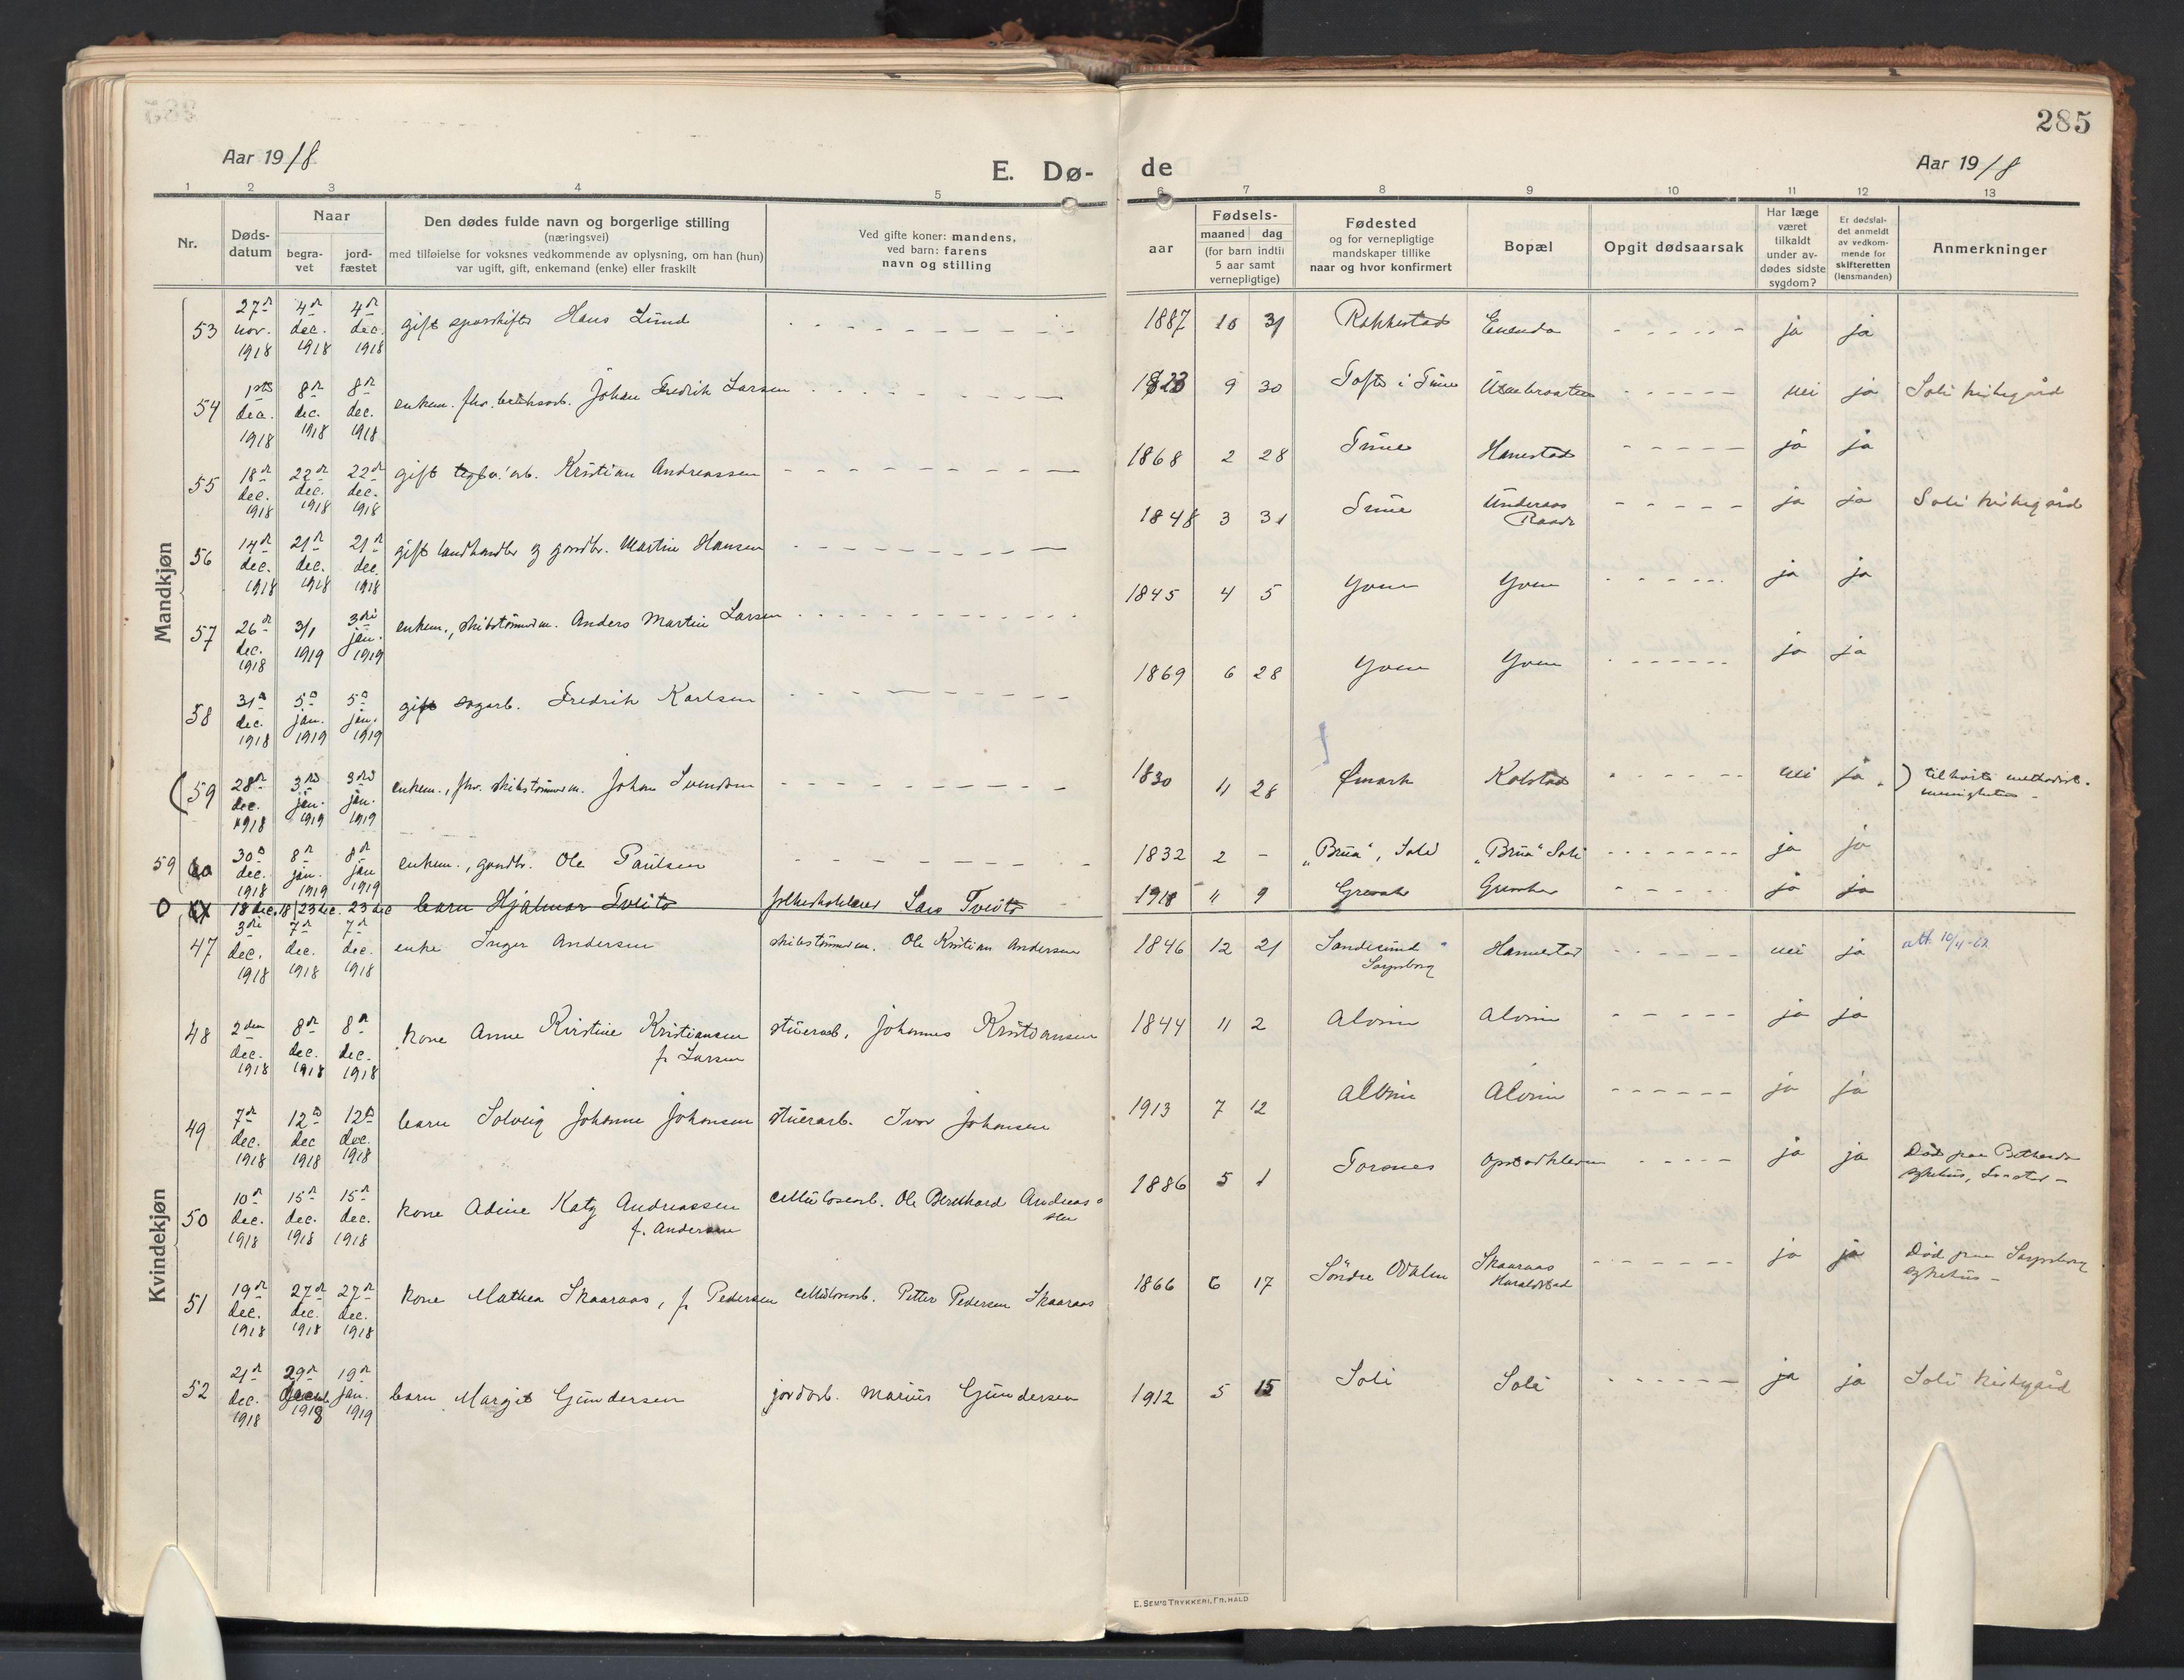 285
Aar 1918
E. Dø-
de
Aar 1918
1 2 3 4 5 6 7 8 9 10 11 12 13
Nr.
Døds-
datum
Naar
begra-
vet
jord-
fæstet
Den dødes fulde navn og borgerlige stilling
(næringsvei)
med tilføielse for voksnes vedkommende av oplysning, om han (hun)
var ugift, gift, enkemand (enke) eller fraskilt
Ved gifte koner: mandens,
ved barn: farens
navn og stilling
aar
Fødsels-
maaned dag
(for barn indtil
5 aar samt
vernepligtige)
Fødested
og for vernepligtige
mandskaper tillike
naar og hvor konfirmert
Bopæl
Opgit dødsaarsak
Har læge
været
tilkaldt
under av-
dødes sidste
sygdom?
Er dødsfal-
det anmeldt
av vedkom-
mende for
skifteretten
(lensmanden)
Anmerkninger
Mandkjøn
53 27de nov. 1918 4de dec. 1918 4de dec. 1918 gift Hans Lund 1887 10 31 Rakkestad Enenda ja ja
54 1ste dec. 1918 8de dec. 1918 8de dec. 1918 enkem. fhv. Johan Fredrik Larsen 9 30 Tofte i Tune nei ja Soli kirkegård
55 18de dec. 1918 22de dec. 1918 22de dec. 1918 gift Kristian Andreassen 1868 2 28 Tune Hanestad ja ja
56 14de dec. 1918 21de dec. 1918 21de dec. 1918 gift landhandler og gaardbr. Martin Hansen 1848 3 31 Tune Underaas Raade ja ja Soli kirkegård
57 26de dec. 1918 3/1 1919 3die jan. 1919 enkem., skibstømmerm. Anders Martin Larsen 1845 4 5 Yven Yven ja ja
58 31te dec. 1918 5te jan. 1919 5te jan. 1919 gift sagarb. Fredrik Karlsen 1869 6 28 Yven Yven ja ja
(59 28de dec. 1918 3die jan. 1919 3die jan. 1919 enkem., fhv. skibstømmerm. Johan Svendsen 1830 11 28 Ømark Kolstad nei ja.) tilhørte methodist-
menigheten -
59 60 30te dec. 1918 8de jan. 1919 8de jan 1919 enkem., gaardbr. Ole Paulsen 1832 2 - "Brua", Soli "Brua" Soli ja ja
0 18 dec. 18 23 dec. 23 dec barn Hjalmar Tveito Lars Tveito 1918 11 9 ja ja
Kvindekjøn
47 3die dec. 1918 7de dec. 1918 7de dec. 1918 enke Inger Andersen skibstømmerm. Ole Kristian Andersen 1846 12 21 Sandesund
Sarpsborg Hannestad nei ja att. 10/4-62
48 2den dec. 1918 8de dec. 1918 8de dec. 1918 kone Anne Kirstine Kristiansen
f. Larsen stuerarb. Johannes Kristiansen 1844 11 2 Alvim Alvim ja ja
49 7de dec. 1918 12te dec 1918 12te dec. 1918 barn Solveig Johanne Johansen stuerarb. Ivar Johansen 1913 7 12 Alvim Alvim ja ja
50 10de dec. 1918 15de dec. 1918 15de dec. 1918 kone Adine Katy Andreassen
f. Andersen cellulosearb. Ole Bernhard Andreas-
sen 1886 5 1 Torsnes ja ja Død paa
sykehus,
51 19de dec. 1918 27de dec. 1918 27de dec. 1918 kone Mathea Skaaraas, f. Pedersen cellulosearb. Petter Pedersen Skaaraas 1866 6 17 Søndre Odalen Skaaraas
Haraldstad ja ja Død paa Sarpsborg
sykehus -
52 21de dec. 1918 29de 1918 19de jan. 1919 barn Margit Gundersen jordarb. Marius Gundersen 1912 5 15 Soli Soli ja ja Soli kirkegård
E. SEM'S TRYKKERI, FR.HALD